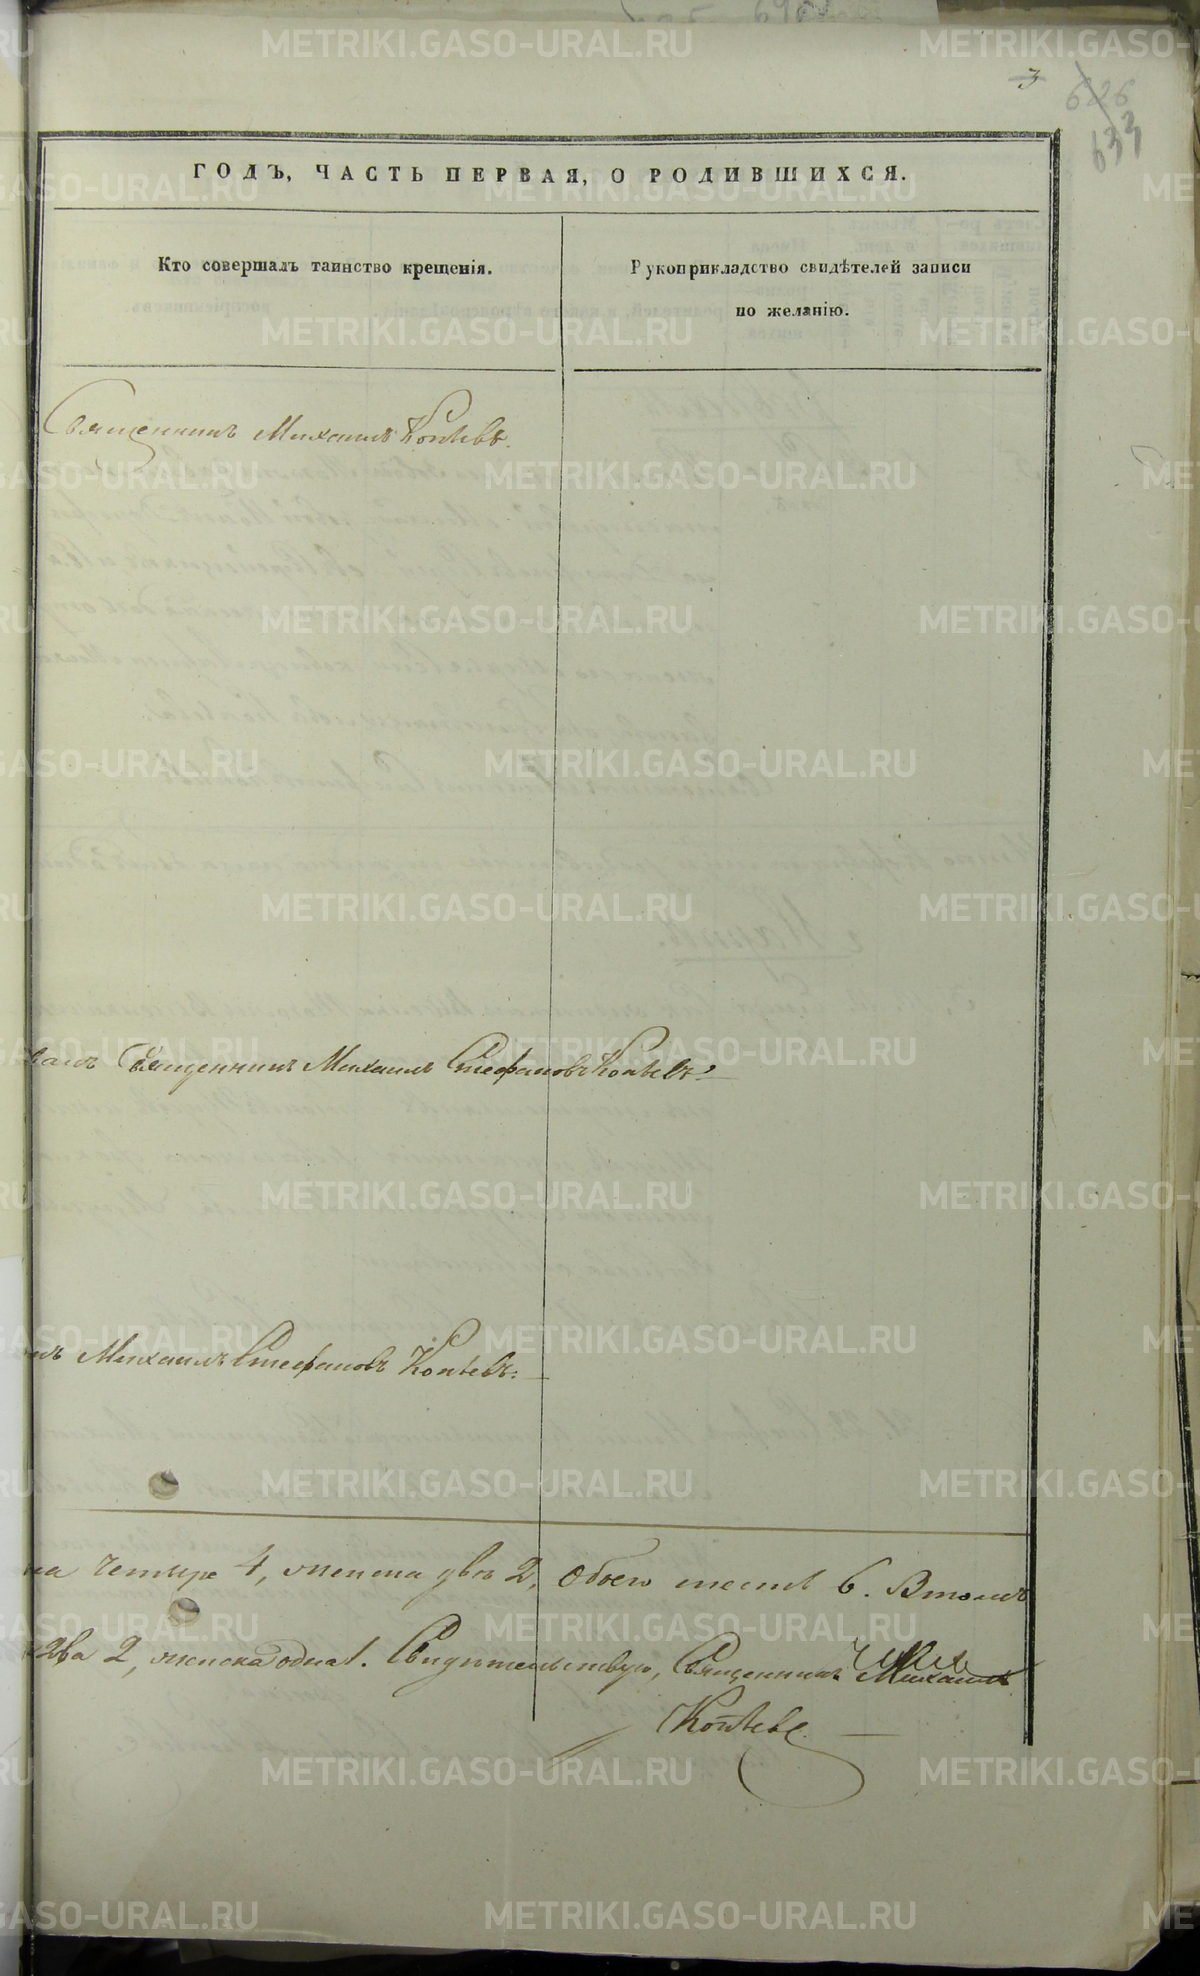 3
626
633
ГОДЪ, ЧАСТЬ ПЕРВАЯ, О РОДИВШИХСЯ.
Кто совершалъ таинство крещенія.
Рукоприкладство свидѣтелей записи
по желанію.
Священникъ Михаилъ Копѣевъ.
Священникъ Михаилъ Стефановъ Копѣевъ.
Михаилъ Стефановъ Копѣевъ.
на четыре 4, женска двѣ 2, Обоего шесть 6. Втомъ
два 2, женска одна 1. Свидѣтельствую, Священникъ Михаилъ
Копѣевъ.
METRIKI.GASO-URAL.RU